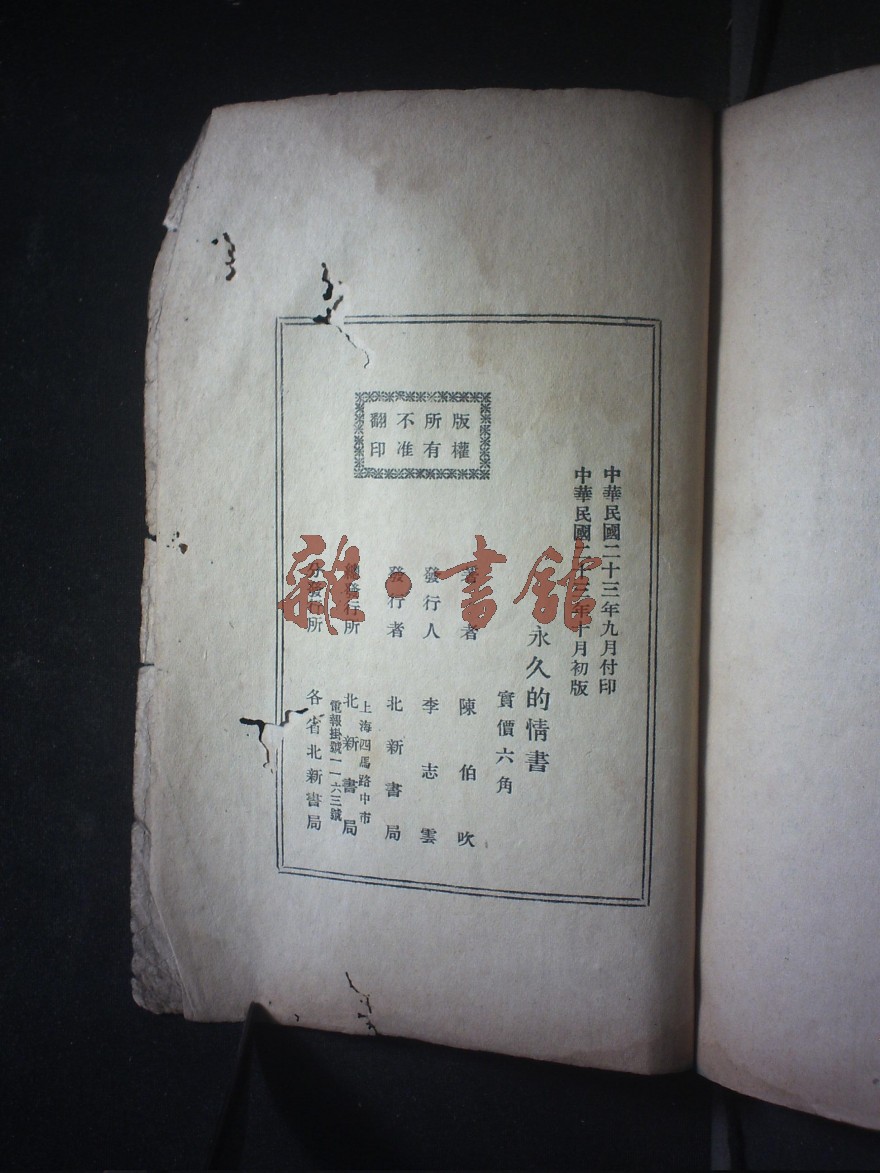 中華民國二十三年九月付印
中華民國二十三年十月初版
永久的情書
實價六角
版權
所有
不准
翻印
著者 陳伯吹
發行人 李志雲
發行者 北新書局
上海四馬路中市
總發行所 北新書局
電報掛號一一六三號
分發行所 各省北新書局
雜·書館